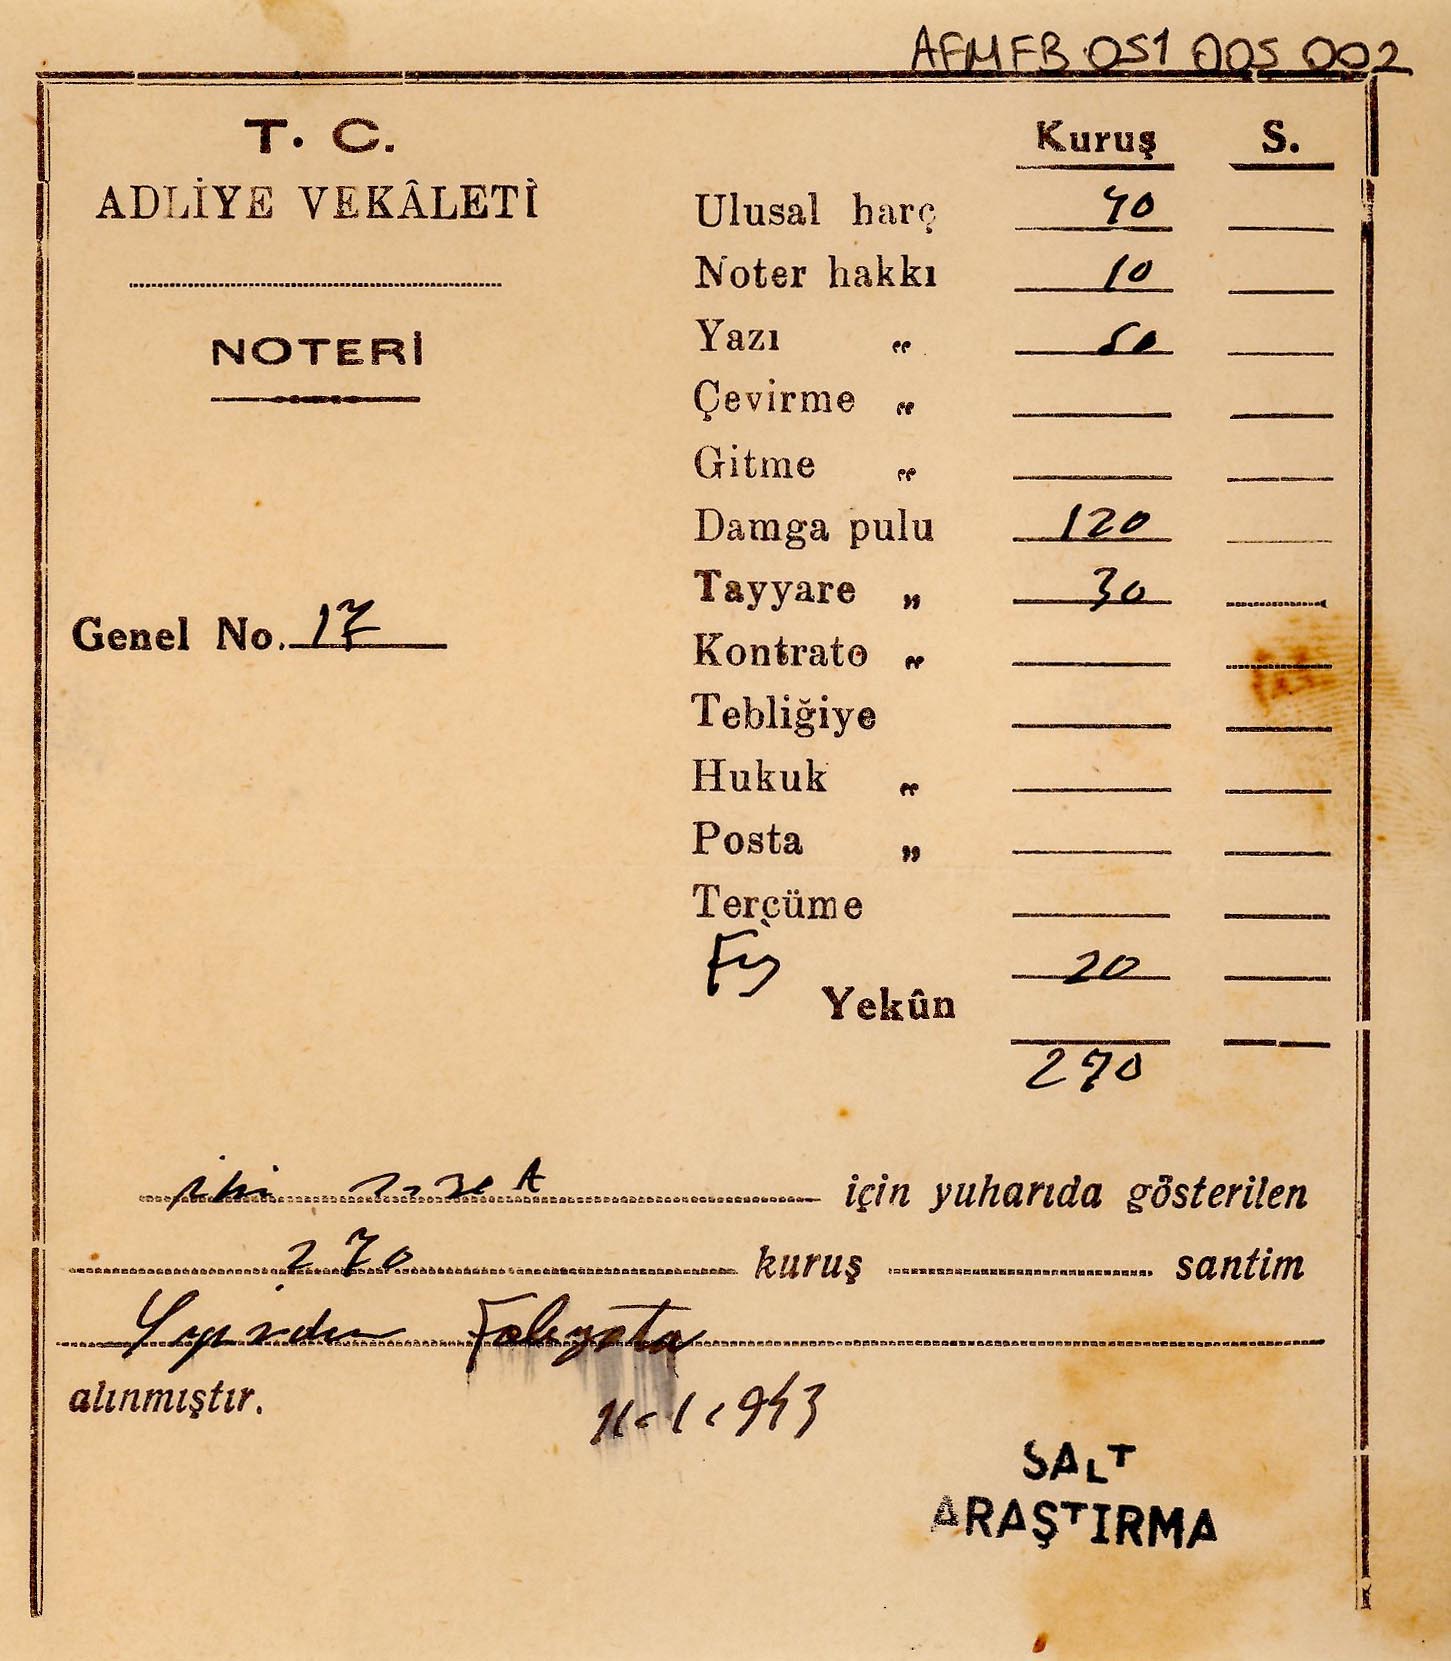 AFMFB 051 005 002
T. C.
ADLİYE VEKÂLETİ
NOTERİ
Genel No. 17
Kuruş S.
Ulusal harç 40
Noter hakkı 10
Yazı „ 50
Çevirme „
Gitme „
Damga pulu 120
Tayyare „ 30
Kontrato „
Tebliğiye
Hukuk „
Posta „
Tercüme
Fiş 20
Yekûn
270
iki için yuharıda gösterilen
270 kuruş santim
alınmıştır.
11-1-943
SALT
ARAŞTIRMA